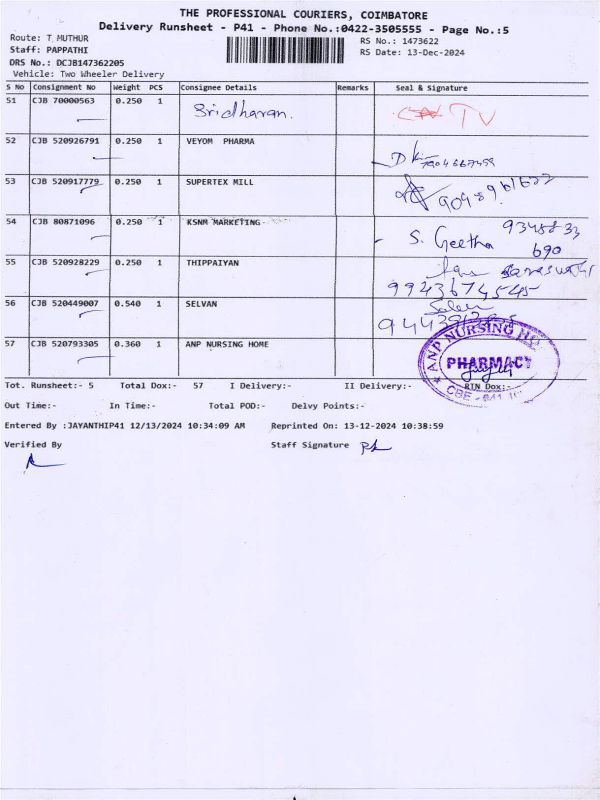 THE PROFESSIONAL COURIERS, COIMBATORE
Delivery Runsheet - P41 - Phone No.:0422-3505555 - Page No.:5
Route: T MUTHUR RS No.: 1473622
Staff: PAPPATHI RS Date: 13-Dec-2024
DRS No.: DCJB147362205
Vehicle: Two Wheeler Delivery
S No Consignment No Weight PCS Consignee Details Remarks Seal & Signature
51 CJB 70000563 0.250 1 Sridharan. TV
52 CJB 520926791 0.250 1 VEYOM PHARMA
53 CJB 520917779 0.250 1 SUPERTEX MILL
54 CJB 80871096 0.250 1 KSNM MARKETING S. Geetha 9348833
690
55 CJB 520928229 0.250 1 THIPPAIYAN Saraswathi
9943674545
56 CJB 520449007 0.540 1 SELVAN
57 CJB 520793305 0.360 1 ANP NURSING HOME ANP NURSING HO
PHARMACY
CBE - 641
Tot. Runsheet:- 5 Total Dox:- 57 I Delivery:- II Delivery:- RTN Dox:-
Out Time:- In Time:- Total POD:- Delvy Points:-
Entered By :JAYANTHIP41 12/13/2024 10:34:09 AM Reprinted On: 13-12-2024 10:38:59
Verified By Staff Signature